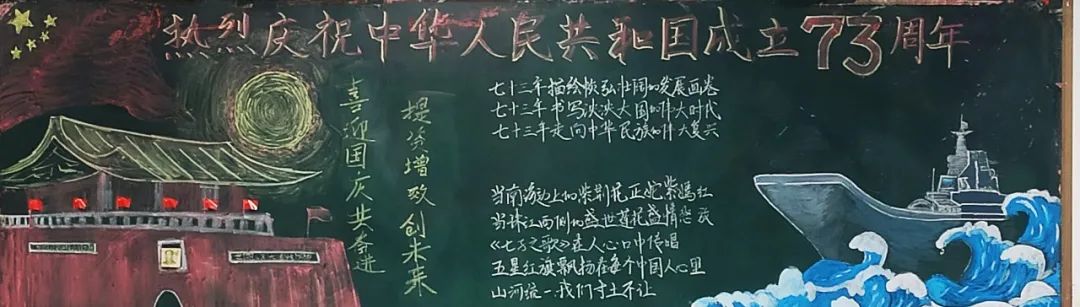 热烈庆祝中华人民共和国成立73周年
喜迎国庆共奋进
提质增效创未来
七十三年描绘恢弘壮阔的发展画卷
七十三年书写泱泱大国的伟大时代
七十三年走向中华民族的伟大复兴
当南海边上的紫荆花正姹紫嫣红
当珠江西侧的盛世莲花盛情
《七子之歌》在人心口中传唱
五星红旗飘扬在每个中国人心里
山河统一,我们寸土不让